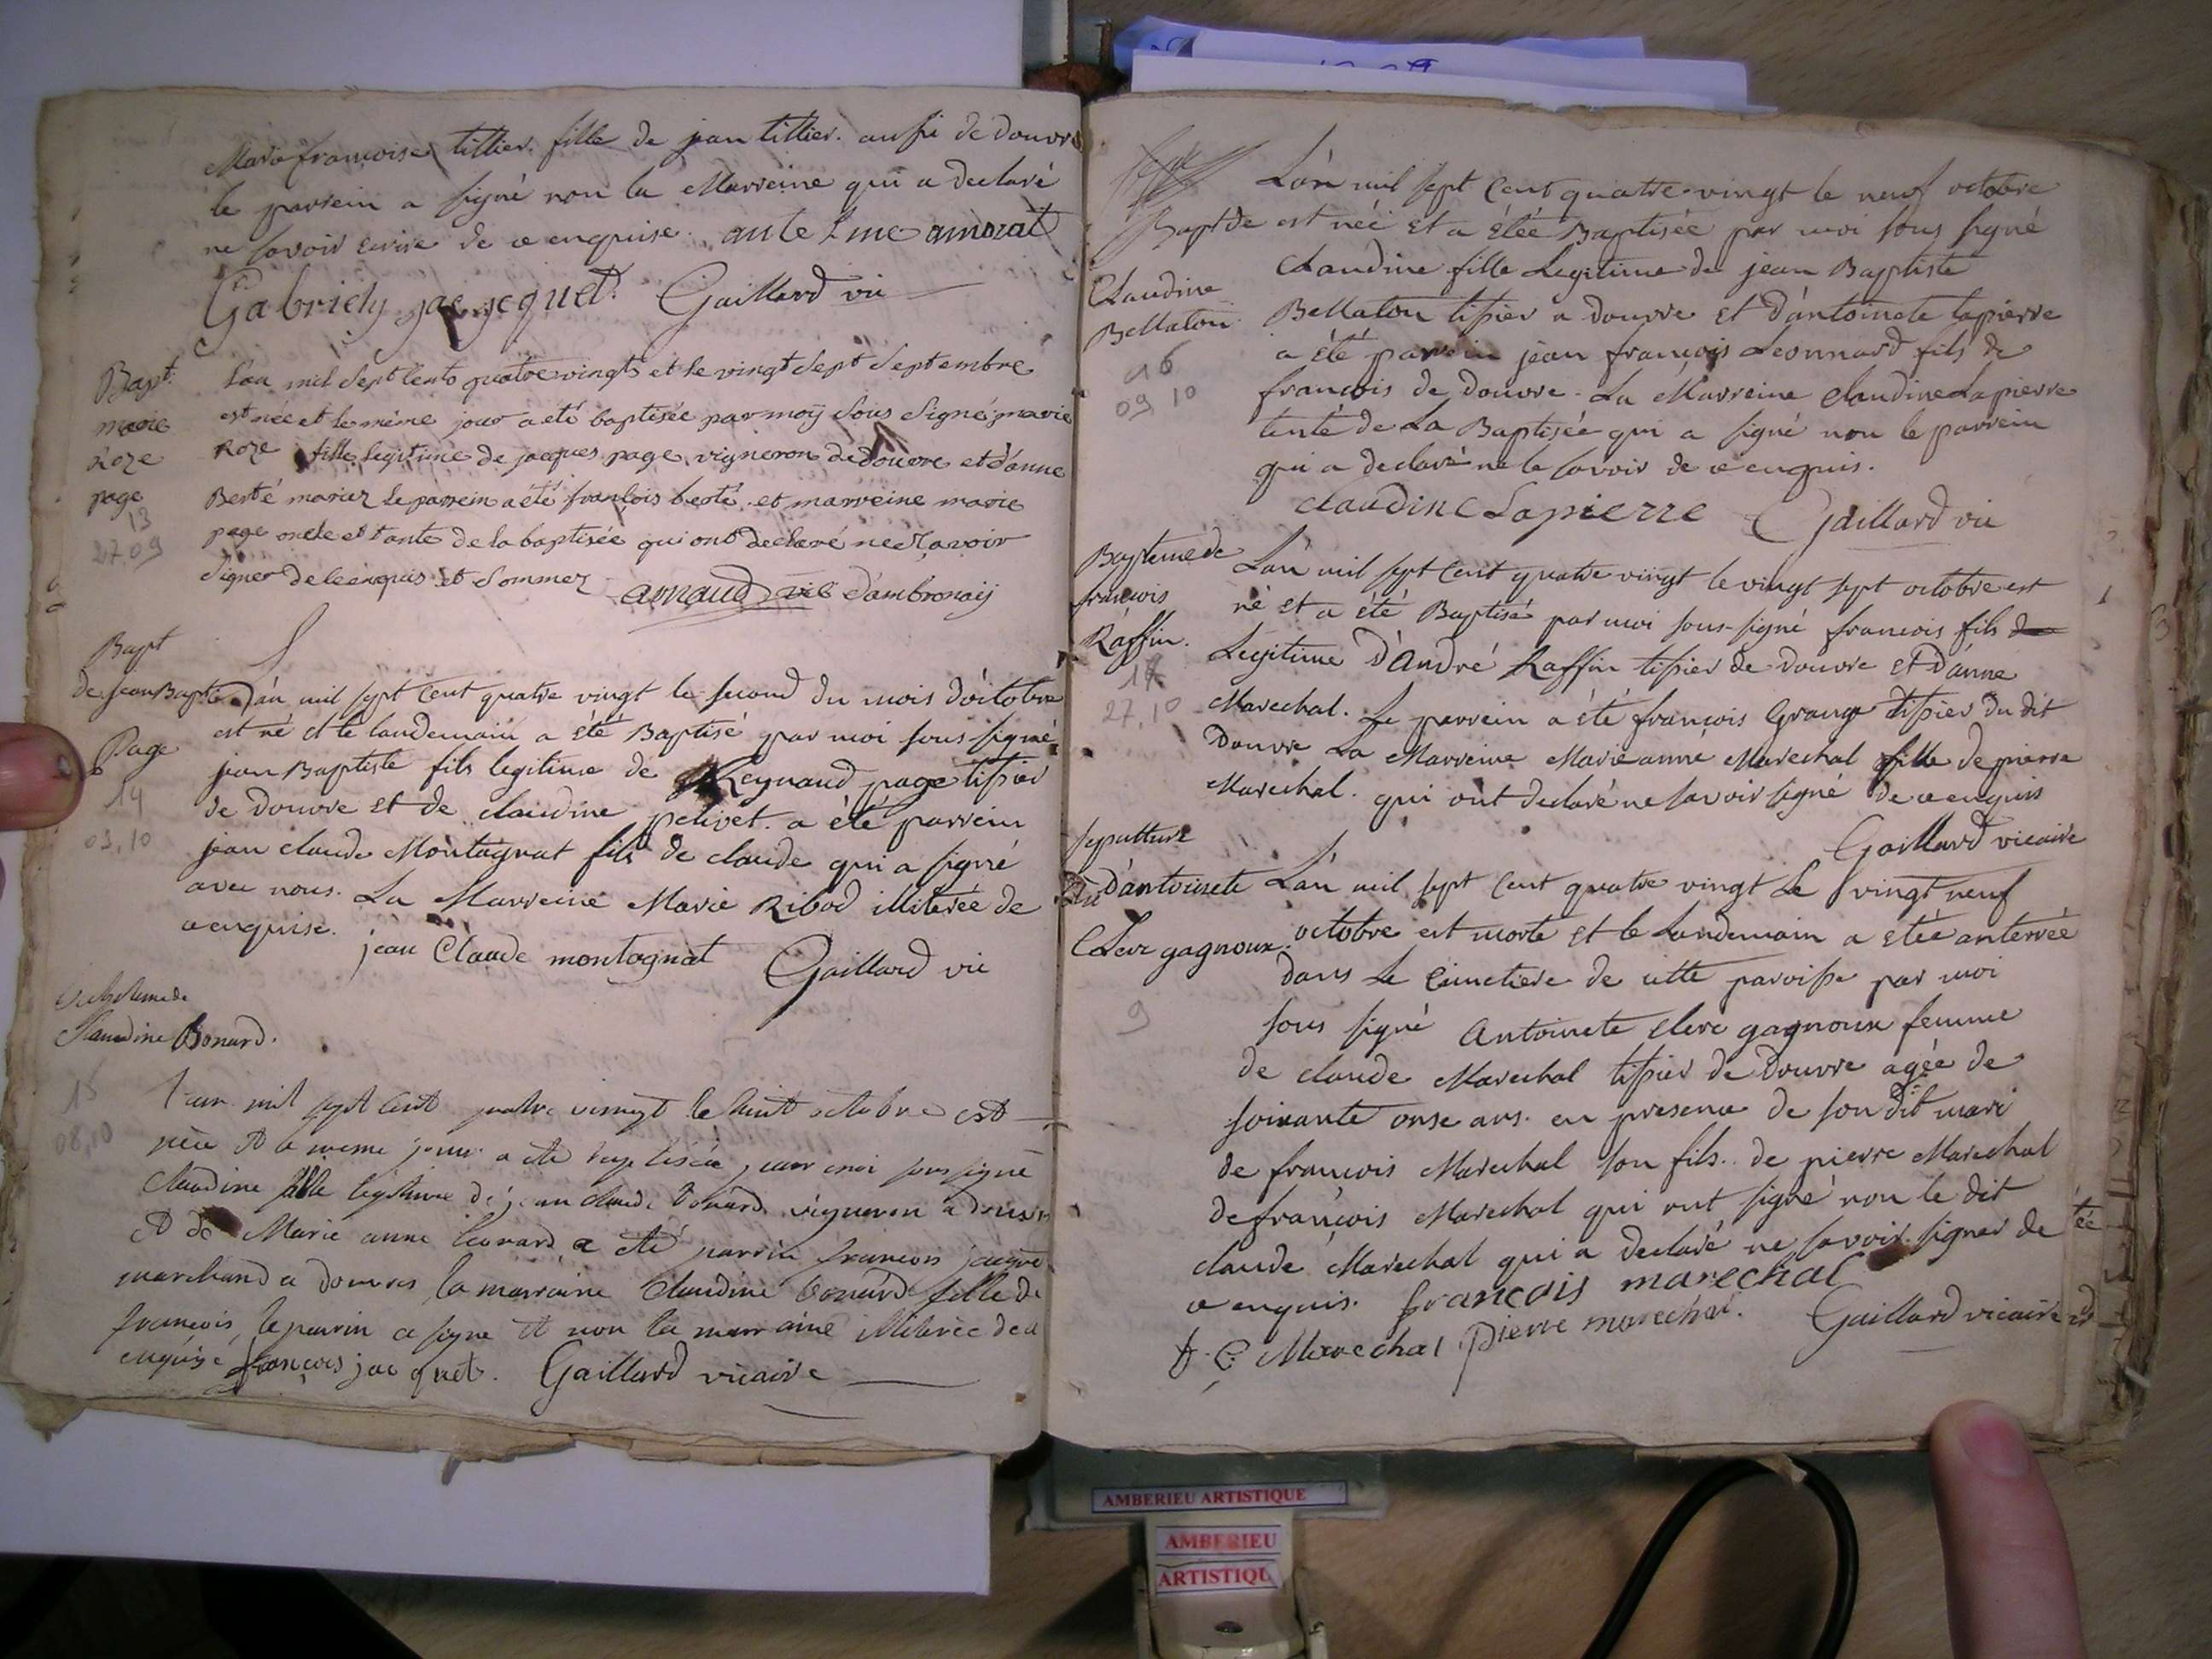 Marie francoise tillier. fille de jean tillier. aussi de douvre
le parrein a signé non la Marreine qui a declaré
ne savoir ecrire de ce enquise. antelme amorat
Gabriely jacquet Gaillard vic
Bapt.
marie
Roze
page
13
27.09
L'an mil sept cents quatre vingts et le vingt sept septembre
est née et le même jour a été baptisée par moy sous signé marie
Roze fille legitime de jacques page vigneron de douvre et d'anne
Berté mariez le parrein a été françois berté et marreine marie
page oncle et tante de la baptisée qui ont declaré ne sçavoir
signer de ce enquis et sommez arnaud vic d'ambronay
Bapt
de jean Baptiste
Page
14
03,10
L'an mil sept cent quatre vingt le second du mois d'octobre
est né et le landemain a été Baptisé par moi sous signé
jean Baptiste fils legitime de Reynaud page tissier
de douvre et de claudine pelivet. a été parrein
jean claude Montagnat fils de claude qui a signé
avec nous. La Marreine Marie Ribod illiterée de
ce enquise.
jean Claude montagnat Gaillard vic
Claudine Bonard.
15
08,10
L'an mil sept cent quatre vingt le huit octobre est
née et le meme jour a été baptisée par moi soussigné
Claudine fille legitime de jean claude Bonard vigneron a douvre
et de Marie anne leonard a été parrin francois jacquet
marchand a douvres la marraine Claudine bonard fille de
francois, le parrin a signe et non la marraine illiterée de ce
enquise françois jacquet. Gaillard vicaire
Bapt de
Claudine
Bellaton
16
09 10
L'an mil sept Cent quatre-vingt le neuf octobre
est née et a étée Baptisée par moi sous signé
Claudine fille Legitime de jean Baptiste
Bellaton tissier a douvre et d'antoinete lapierre
a été parrein jean françois Leonnard fils de
francois de douvre. La Marreine Claudine Lapierre
tente de La Baptisée qui a signé non le parrein
qui a declaré ne le savoir de ce enquis.
claudine Lapierre Gaillard vic
Bapteme de
francois
Raffin.
17
27,10
L'an mil sept Cent quatre vingt le vingt sept octobre est
né et a été Baptisé par moi sous-signé francois fils de
Legitime d'André Raffin tissier de douvre et d'anne
Marechal. Le parrein a été francois Grange tissier du dit
douvre La Marreine Marie anne Marechal fille de pierre
Marechal. qui ont declaré ne savoir signé de ce enquis
Gaillard vicaire
sepulture
d'antoinete
Clerc gagnoux
9
L'an mil sept Cent quatre vingt Le vingt neuf
octobre est morte et le Landemain a étée anterrée
dans Le Cimetiere de cette paroisse par moi
sous signé Antoinete clerc gagnoux femme
de claude Marechal tissier de Douvre agée de
soixante onse ans. en presence de son dit mari
de francois Marechal son fils. de pierre Marechal
de francois Marechal qui ont signé non le dit
claude Marechal qui a declaré ne savoir signer de
ce enquis. francois marechal
f. C. Marechal pierre marechal. Gaillard vicaire
AMBERIEU ARTISTIQUE
AMBERIEU
ARTISTIQU